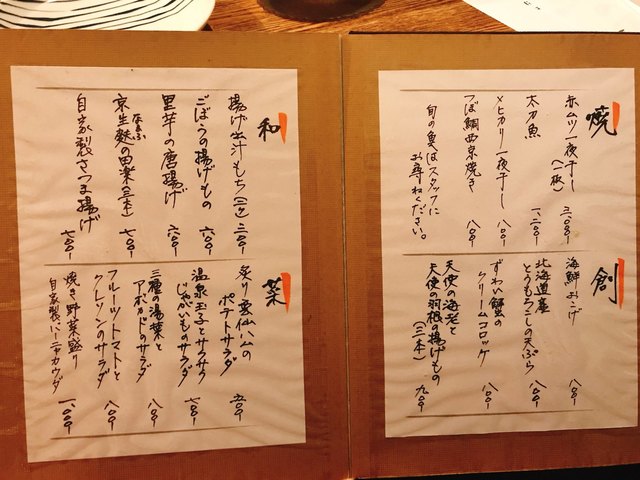 焼
赤ムツ一夜干し(一枚) 三、〇〇〇-
太刀魚 一、二〇〇-
メヒカリ一夜干し 八〇〇-
つぼ鯛西京焼き
旬の魚はスタッフに
お尋ねください。
創
海鮮おこげ 八〇〇-
北海道産
とうもろこしの天ぷら 八〇〇-
ずわい蟹の
クリームコロッケ 八〇〇-
天使の海老と
天使の羽根の揚げもの(三本) 九〇〇-
和
揚げ出汁もち(三ケ) 三〇〇-
ごぼうの揚げもの 六〇〇-
里芋の唐揚げ 六〇〇-
京生麩の田楽(三本) 七〇〇-
なまふ
自家製さつま揚げ 七〇〇-
菜
炙り雲仙ハムの
ポテトサラダ 五〇〇-
温泉玉子とサクサク
じゃがいものサラダ 七〇〇-
三種の湯葉と
アボカドのサラダ 八〇〇-
フルーツトマトと
クレソンのサラダ 八〇〇-
焼き野菜盛り
自家製バーニャカウダ 一、〇〇〇-